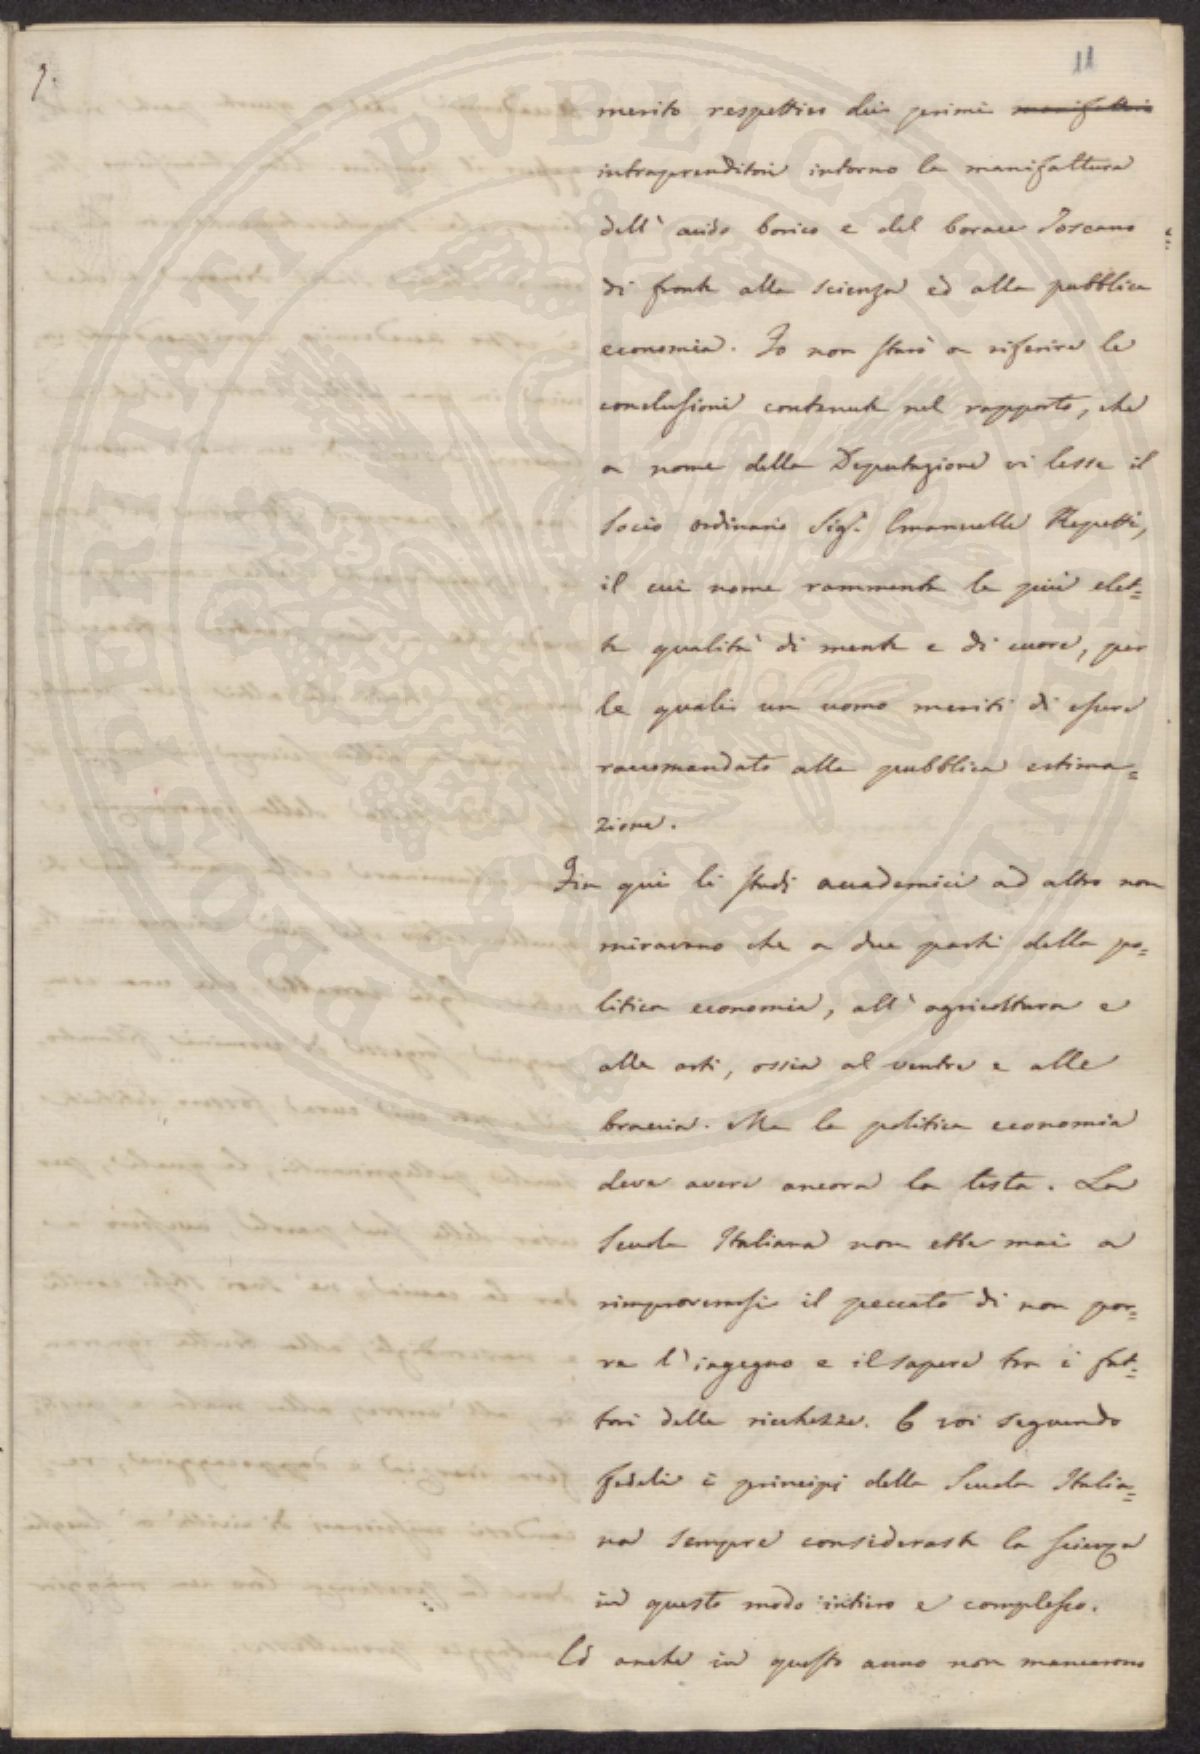 11
merito respettivo dei primi manifattori
intraprenditori intorno la manifattura
dell' acido borico e del borace Toscano
di fronte alla scienza ed alla pubblica
economia. Io non starò a riferire le
conclusioni contenute nel rapporto, che
a nome della Deputazione vi lesse il
socio ordinario Sigr. Emanuelle Repetti,
il cui nome rammenta le più elet=
te qualità di mente e di cuore, per
le quali un uomo meriti di essere
raccomandato alla pubblica estima=
zione.
Fin qui li studj accademici ad altro non
miravano che a due parti della po=
litica economia, all' agricoltura e
alle arti, ossia al ventre e alle
braccia. Ma la politica economia
deve avere ancora la testa. La
Scuola Italiana non ebbe mai a
rimproverarsi il peccato di non por=
re l' ingegno e il sapere tra i fat=
tori delle ricchezze. E voi seguendo
fedeli i principj della Scuola Italia=
na sempre consideraste la scienza
in questo modo intiero e complesso.
Ed anche in questo anno non mancarono
PROSPERITATI PUBLICAE AUGENDAE